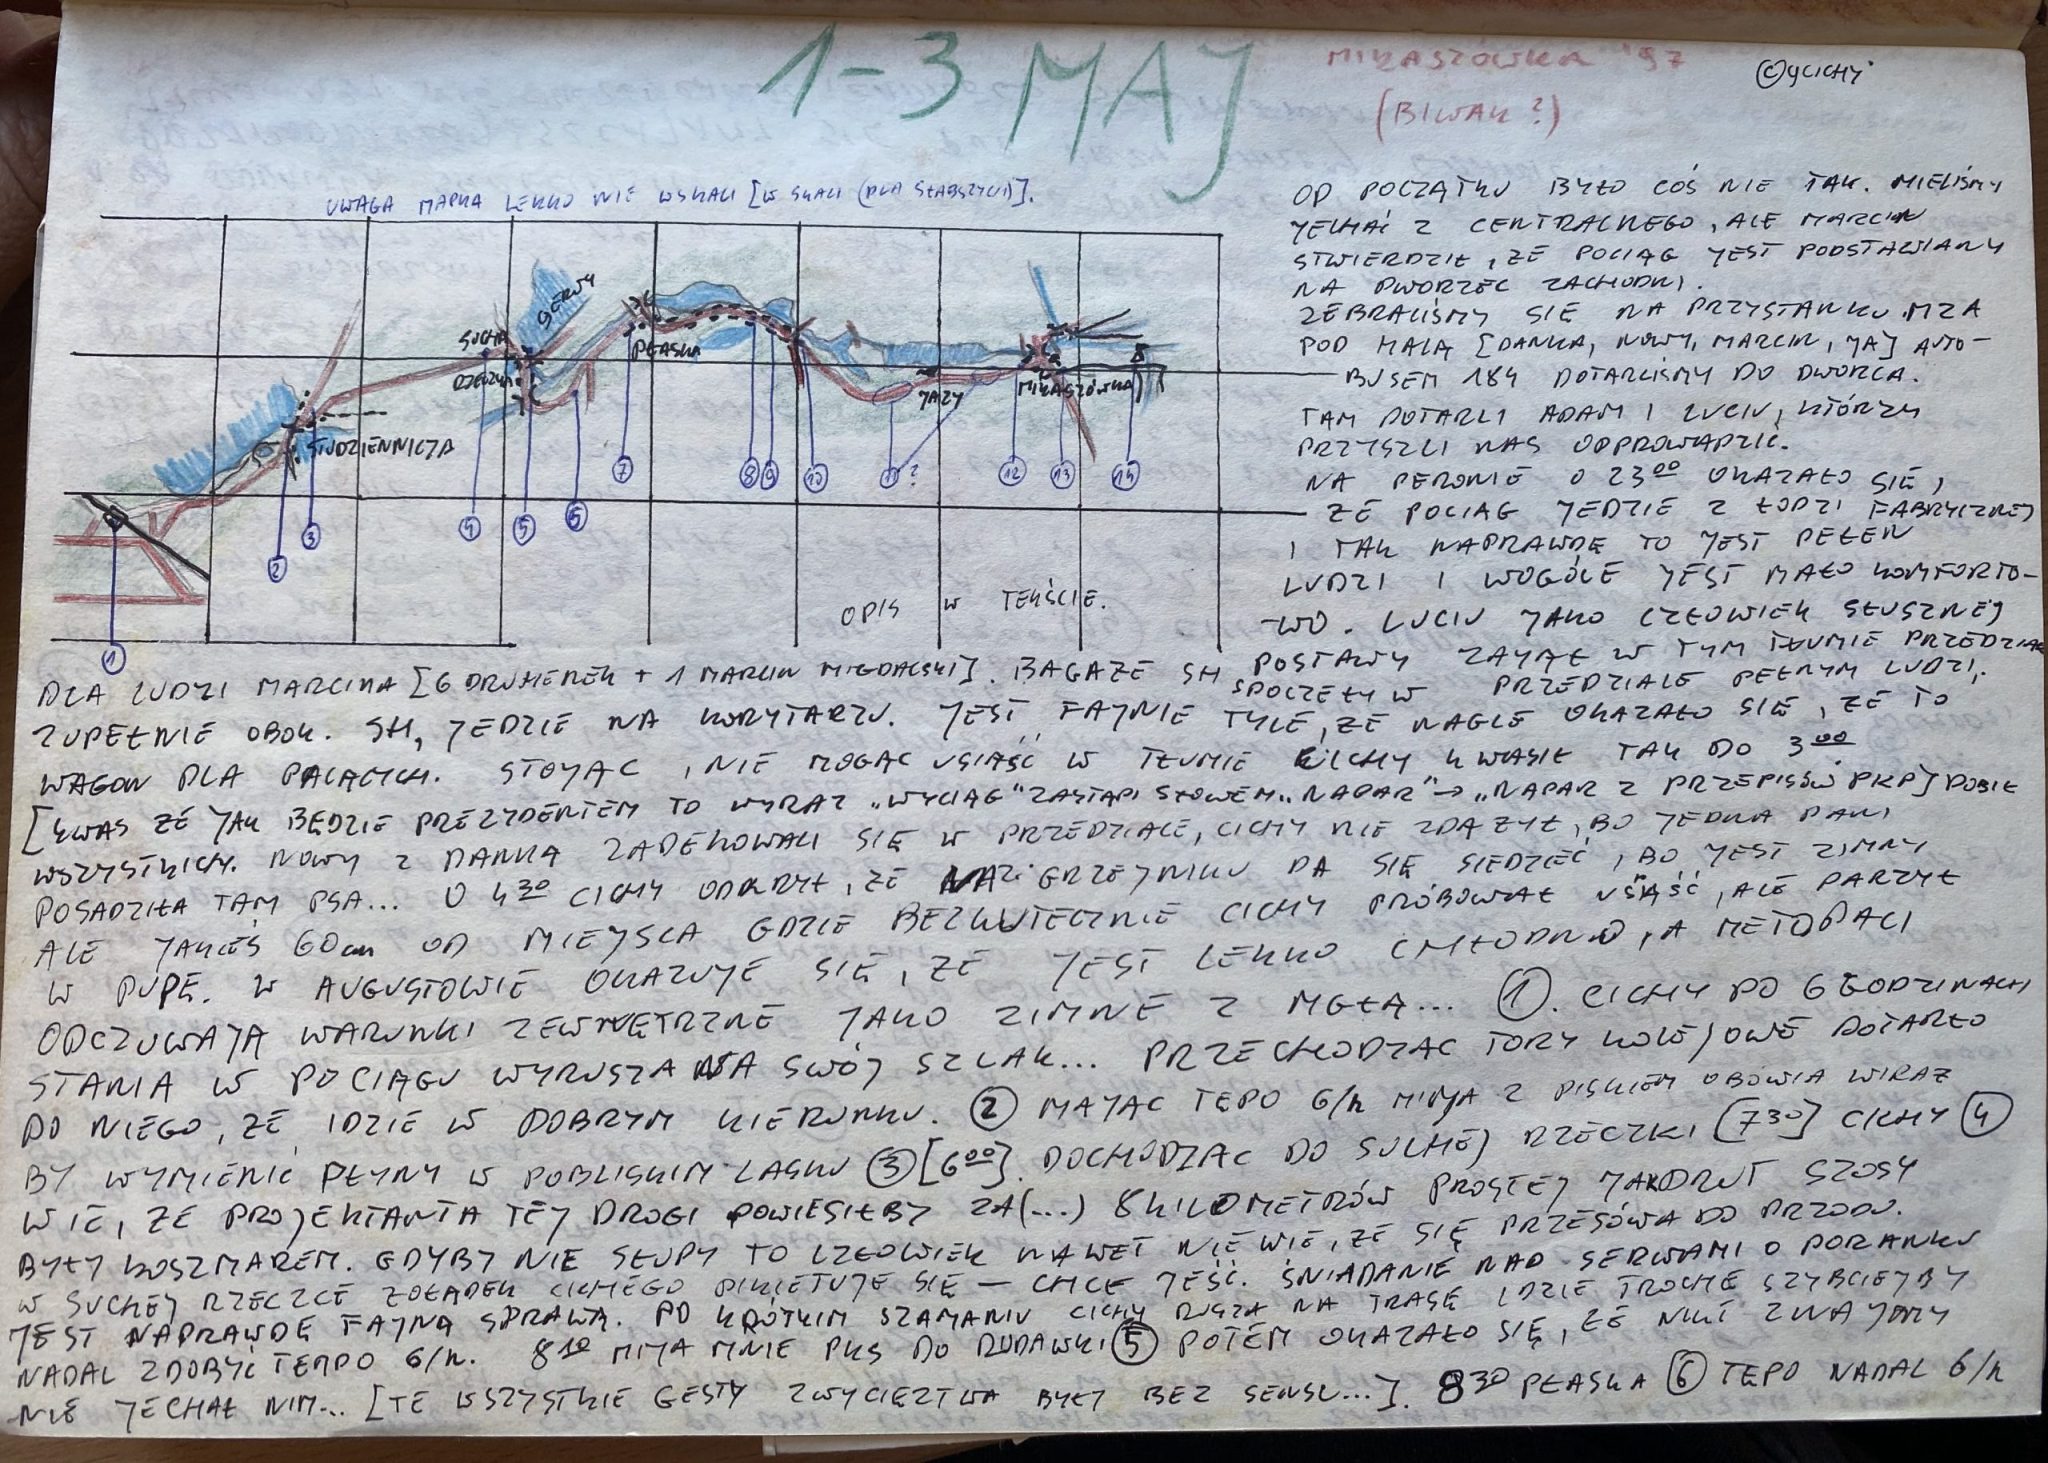 1-3 MAJ
MIKASZÓWKA '97
(BIWAK?)
© YCICHY
UWAGA MAPKA LEKKO NIE WSKALI [W SKALI (DLA SŁABSZYCH)].
SERWY
SUCHA
RZECZKA
PŁASKA
JAZY
MIKASZÓWKA
STUDZIENNICZA
7 8 9 10 11 ? 12 13 14
4 5 6
3
2
1
OPIS W TEKŚCIE.
OD POCZĄTKU BYŁO COŚ NIE TAK. MIELIŚMY
JECHAĆ Z CENTRALNEGO, ALE MARCIN
STWIERDZIŁ, ŻE POCIĄG JEST PODSTAWIANY
NA DWORZEC ZACHODNI.
ZEBRALIŚMY SIĘ NA PRZYSTANKU MZA
POD HALĄ [DANKA, NOWY, MARCIN, JA] AUTO-
BUSEM 184 DOTARLIŚMY DO DWORCA.
TAM DOTARLI ADAM I LUCIU, KTÓRZY
PRZYSZLI NAS ODPROWADZIĆ.
NA PERONIE O 23⁰⁰ OKAZAŁO SIĘ,
ŻE POCIĄG JEDZIE Z ŁODZI FABRYCZNEJ
I TAK NAPRAWDĘ TO JEST PEŁEN
LUDZI I WOGÓLE JEST MAŁO KOMFORTO-
-WO. LUCIU JAKO CZŁOWIEK SŁUSZNEJ
POSTAWY ZAJĄŁ W TYM TŁUMIE PRZEDZIAŁ
DLA LUDZI MARCINA [6 DRUHENEK + 1 MARCIN MIGDALSKI]. BAGAŻE SH SPOCZĘŁY W PRZEDZIALE PEŁNYM LUDZI,
ZUPEŁNIE OBOK. SH, JEDZIE NA KORYTARZU. JEST FAJNIE TYLE, ŻE NAGLE OKAZAŁO SIĘ, ŻE TO
WAGON DLA PALĄCYCH. STOJĄC, NIE MOGĄC USIĄŚĆ W TŁUMIE CICHY KWASIŁ TAK DO 3⁰⁰
[KWAS ŻE JAK BĘDZIE PREZYDENTEM TO WYRAZ „WYCIĄG" ZASTĄPI SŁOWEM „NAPAR" → „NAPAR Z PRZEPISÓW PKP] DOBIŁ
WSZYSTKICH. NOWY Z DANKĄ ZADEKOWALI SIĘ W PRZEDZIALE, CICHY NIE ZDĄŻYŁ, BO JEDNA PANI
POSADZIŁA TAM PSA... O 4³⁰ CICHY ODKRYŁ, ŻE NA GRZEJNIKU DA SIĘ SIEDZIEĆ, BO JEST ZIMNY
ALE JAKIEŚ 60cm OD MIEJSCA GDZIE BEZKUTECZNIE CICHY PRÓBOWAŁ USIĄŚĆ, ALE PARZYŁ
W PUPĘ. W AUGUSTOWIE OKAZUJE SIĘ, ŻE JEST LEKKO CHŁODNO, A METOPACI
ODCZUWAJĄ WARUNKI ZEWNĘTRZNE JAKO ZIMNE Z MGŁĄ... ①. CICHY PO 6 GODZINACH
STANIA W POCIĄGU WYRUSZA NA SWÓJ SZLAK... PRZECHODZĄC TORY KOLEJOWE DOTARŁO
DO NIEGO, ŻE IDZIE W DOBRYM KIERUNKU. ② MAJĄC TĘPO 6/h MIJA Z PISKIEM OBÓWIA WIRAŻ
BY WYMIENIĆ PŁYNY W POBLISKIM LASKU ③ [6⁰⁰]. DOCHODZĄC DO SUCHEJ RZECZKI [7³⁰] CICHY ④
WIE, ŻE PROJEKTANTA TEJ DROGI POWIESIŁBY ZA (...) 8 KILOMETRÓW PROSTEJ JAK DRUT SZOSY
BYŁY KOSZMAREM. GDYBY NIE SŁUPY TO CZŁOWIEK NAWET NIE WIE, ŻE SIĘ PRZESÓWA DO PRZODU.
W SUCHEJ RZECZCE ŻOŁĄDEK CICHEGO PIKIETUJE SIĘ — CHCE JEŚĆ. ŚNIADANIE NAD SERWAMI O PORANKU
JEST NAPRAWDĘ FAJNĄ SPRAWĄ. PO KRÓTKIM SZAMANIU CICHY RUSZA NA TRASĘ IDZIE TROCHĘ SZYBCIEJ BY
NADAL ZDOBYĆ TEMPO 6/h. 8¹⁰ MIJA MNIE PKS DO RUDAWKI ⑤ POTEM OKAZAŁO SIĘ, ŻE NIKT ZNAJOMY
NIE JECHAŁ NIM... [TE WSZYSTKIE GESTY ZWYCIĘZTWA BYŁY BEZ SENSU...]. 8³⁰ PŁASKA ⑥ TĘPO NADAL 6/h